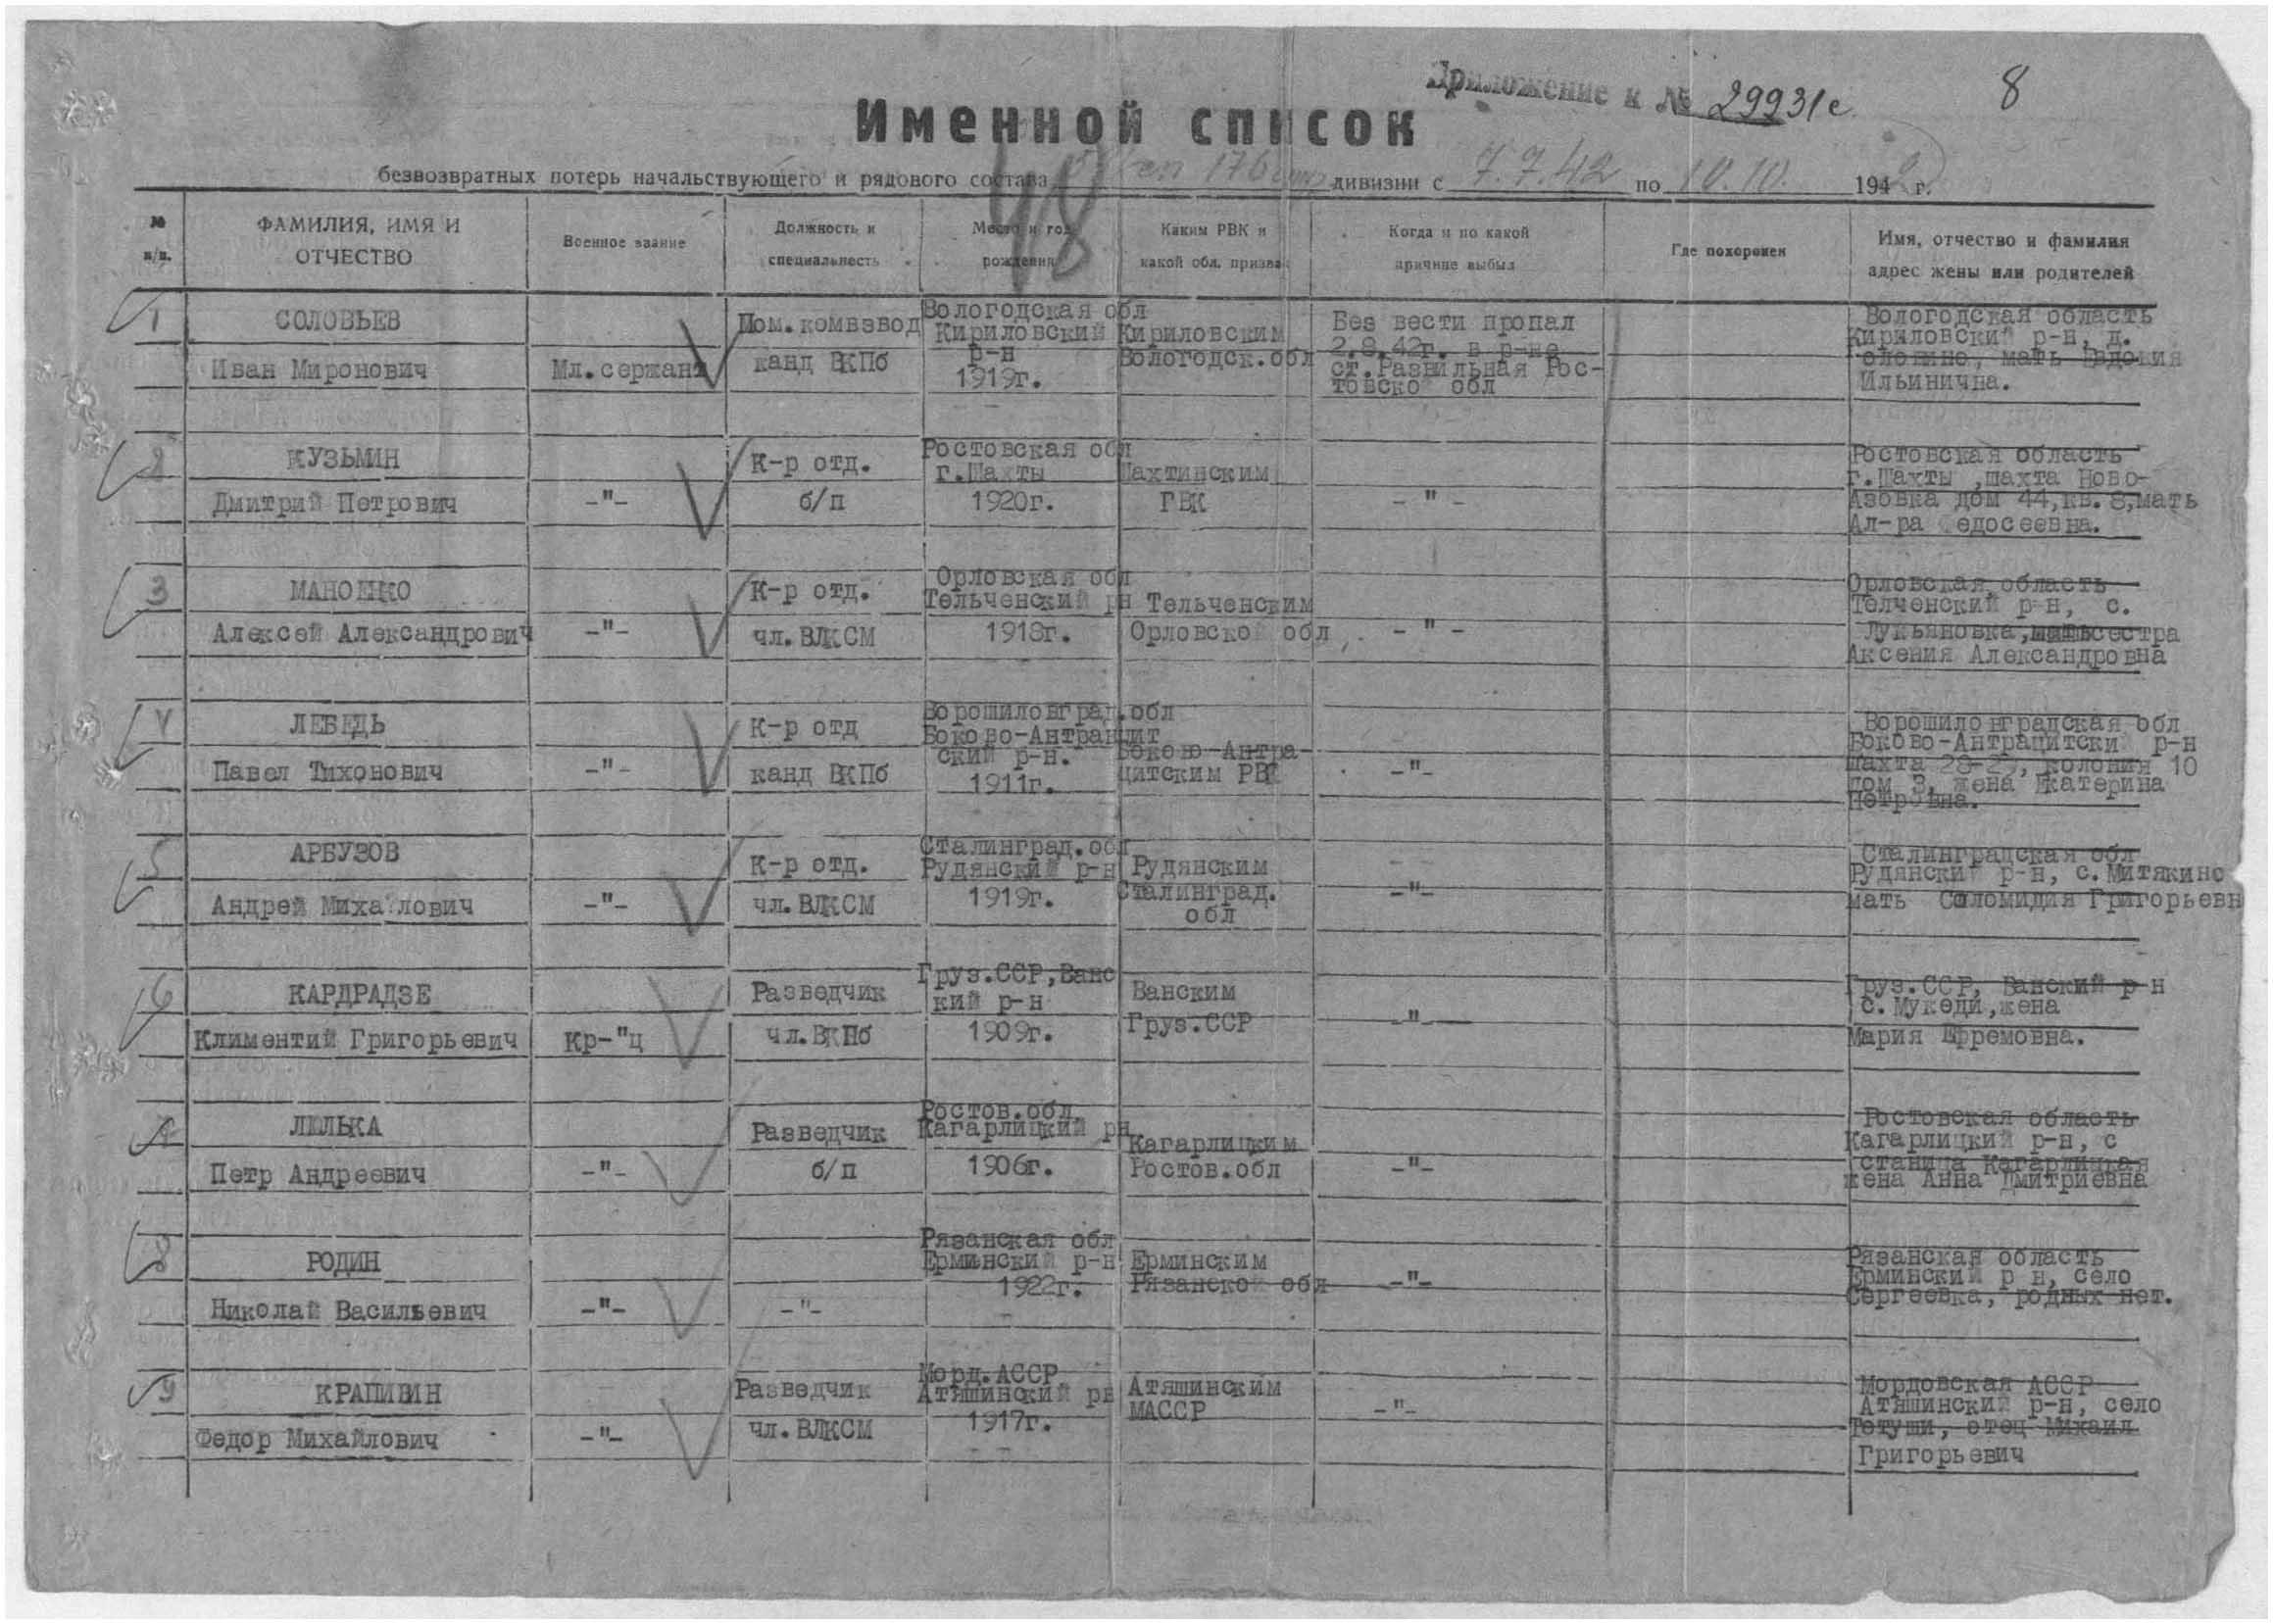 Приложение к № 29931с
8
Именной список
безвозвратных потерь начальствующего и рядового состава 176 дивизии с 7.7.42 по 10.10. 1942 г.
48
№ п/п.
ФАМИЛИЯ, ИМЯ И ОТЧЕСТВО
Военное звание
Должность и специальность
Место и год рождения
Каким РВК и какой обл. призван
Когда и по какой причине выбыл
Где похоронен
Имя, отчество и фамилия адрес жены или родителей
1
СОЛОВЬЕВ
Иван Миронович
Мл.сержант
Пом.комвзвод
канд ВКПб
Вологодская обл
Кириловский
р-н
1919г.
Кириловским
Вологодск.обл
Без вести пропал
2.8.42г. в р-не
ст.Развильная Рос-
товско обл
Вологодская область
Кириловский р-н, д.
мать Евдокия
Ильинична.
2
КУЗЬМИН
Дмитрий Петрович
-"-
К-р отд.
б/п
Ростовская обл
г.Шахты
1920г.
Шахтинским
ГВК
-"-
Ростовская область
г.Шахты ,шахта Ново-
Азовка дом 44,кв.8,мать
Ал-ра едосеевна.
3
МАНОЕНКО
Алексей Александрович
-"-
К-р отд.
чл.ВЛКСМ
Орловская обл
Тельченский рн
1918г.
Тельченским
Орловской обл
-"-
Орловская область
Телченский р-н, с.
Лукьяновка, сестра
Аксения Александровна
4
ЛЕБЕДЬ
Павел Тихонович
-"-
К-р отд
канд ВКПб
Ворошиловград.обл
Боково-Антрацит
ский р-н.
1911г.
Боково-Антра-
цитским РВК
-"-
Ворошиловградская обл
Боково-Антрацитски р-н
шахта колония 10
дом 3, жена Екатерина
Петровна.
5
АРБУЗОВ
Андрей Михайлович
-"-
К-р отд.
чл.ВЛКСМ
Сталинград.обл
Рудянский р-н
1919г.
Рудянским
Сталинград.
обл
-"-
Сталинградская обл
Рудянский р-н, с.Митякино
мать Соломидия Григорьевн
6
КАРДРАДЗЕ
Климентий Григорьевич
Кр-"ц
Разведчик
чл.ВКПб
Груз.ССР,Ванс
кий р-н
1909г.
Ванским
Груз.ССР
-"-
Груз.ССР, Ванский р-н
с.Мукеди,жена
Мария Ефремовна.
7
ЛЮЛЬКА
Петр Андреевич
-"-
Разведчик
б/п
Ростов.обл.
Кагарлицкий рн
1906г.
Кагарлицким
Ростов.обл
-"-
Ростовская область
Кагарлицкий р-н, с
станица Кагарлицкая
жена Анна Дмитриевна
8
РОДИН
Николай Васильевич
-"-
-"-
Рязанская обл
Ерминский р-н
1922г.
Ерминским
Рязанской обл
-"-
Рязанская область
Ерминский р н, село
Сергеевка, родных нет.
9
КРАПИВИН
Федор Михайлович
-"-
Разведчик
чл.ВЛКСМ
Морд.АССР
Атяшинский рн
1917г.
Атяшинским
МАССР
-"-
Мордовская АССР
Атяшинский р-н, село
Тетуши, отец Михаил
Григорьевич